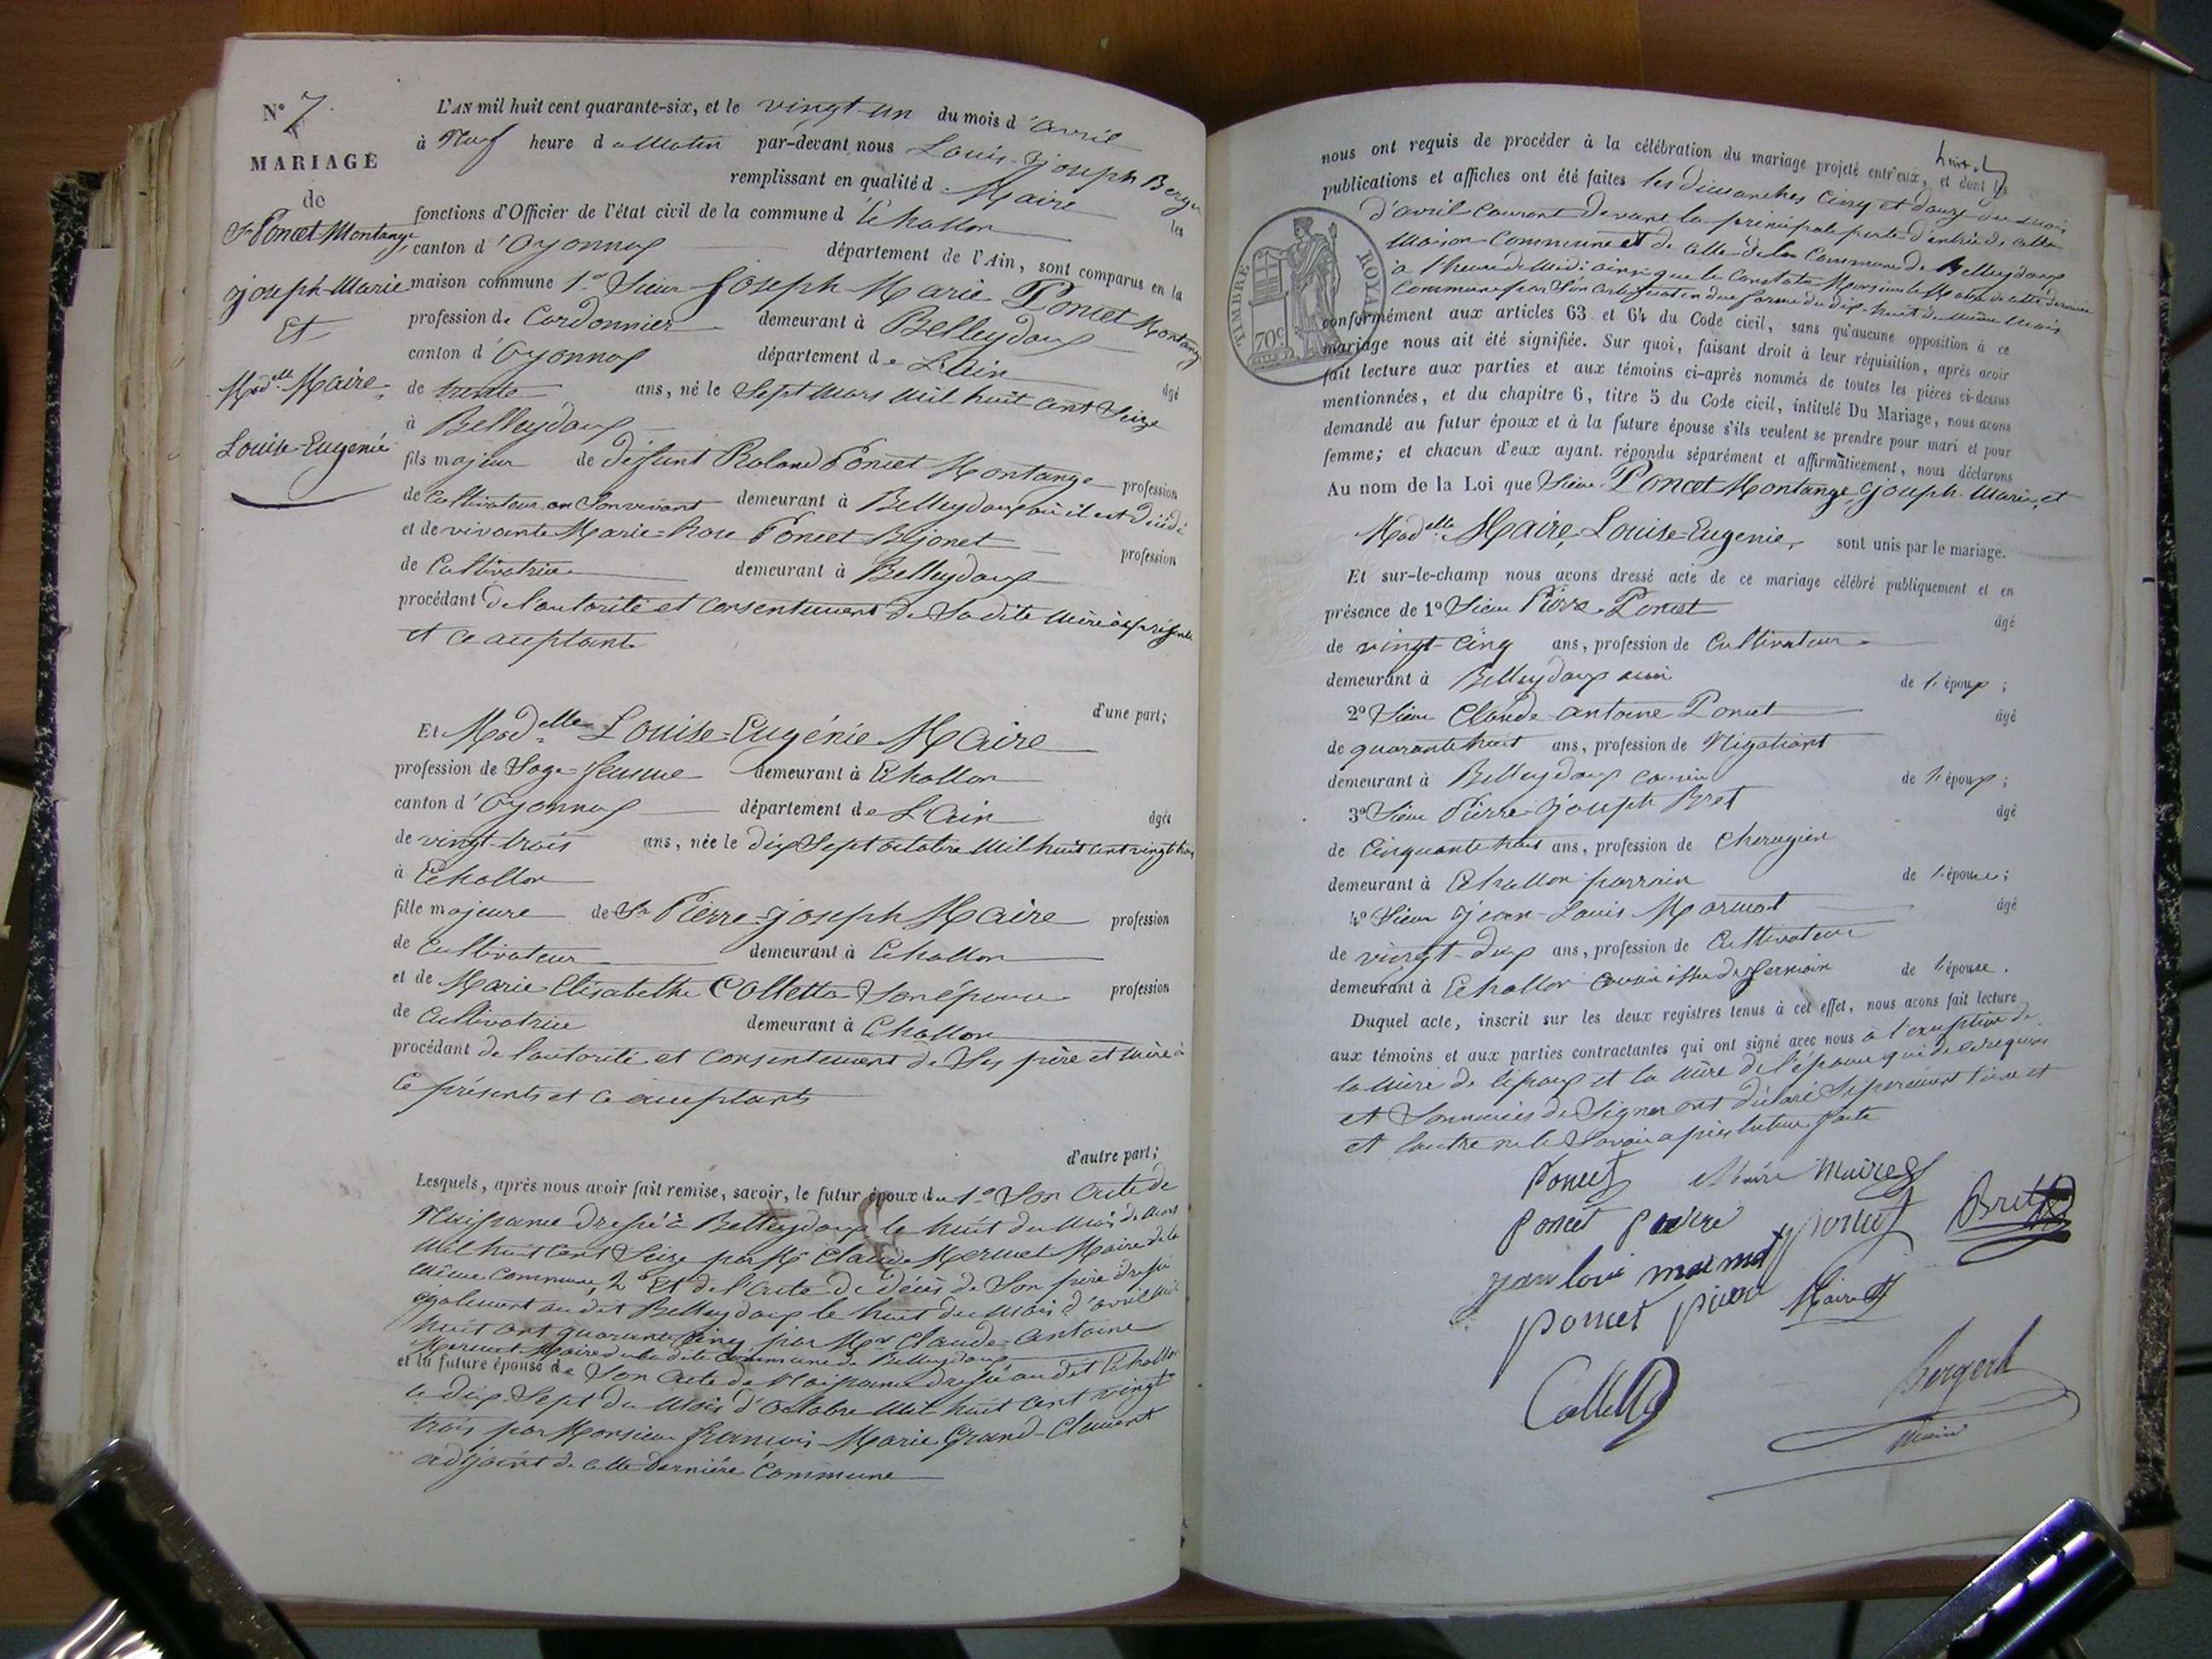 N° 7
MARIAGE
de
Sr Poncet Montange
Joseph-Marie
Et
Madelle Maire
Louise-Eugenie
L'AN mil huit cent quarante-six, et le vingt-un du mois d'avril
à Neuf heure du Matin par-devant nous Louis-Joseph Berger
remplissant en qualité de Maire les
fonctions d'Officier de l'état civil de la commune d'Echallon
canton d'Oyonnax département de l'Ain, sont comparus en la
maison commune 1° Sieur Joseph-Marie Poncet Montange
profession de Cordonnier demeurant à Belleydoux
canton d'Oyonnax département de L'Ain âgé
de trente ans, né le Sept Mars Mil huit cent Seize
à Belleydoux
fils majeur de défunt Roland Poncet Montange profession
de Cultivateur en Son vivant demeurant à Belleydoux où il est décédé
et de vivante Marie-Rose Poncet Bijonet profession
de Cultivatrice demeurant à Belleydoux
procédant de l'autorité et consentement de Sa dite Mère à ce présente
et ce acceptante
d'une part;
Et Madelle Louise-Eugénie Maire
profession de Sage-femme demeurant à Echallon
canton d'Oyonnax département de L'Ain âgée
de vingt-trois ans, née le dix Sept octobre Mil huit cent vingt trois
à Echallon
fille majeure de Sr Pierre-Joseph Maire profession
de Cultivateur demeurant à Echallon
et de Marie Elisabethe Colletta Son épouse profession
de Cultivatrice demeurant à Echallon
procédant de l'autorité et consentement de Ses père et Mère à
ce présents et ce acceptants
d'autre part;
Lesquels, après nous avoir fait remise, savoir, le futur époux de 1° Son acte de
Naissance dressé à Belleydoux le huit du Mois de Mars
Mil huit Cent Seize par Mr Claude Mermet Maire de la
même Commune, 2° Et de l'acte de décès de Son père dressé
également au dit Belleydoux le huit du Mois d'avril Mil
huit cent quarante cinq par Mr Claude-Antoine
Mermet Maire de la dite Commune de Belleydoux
et la future épouse de Son acte de Naissance dressé au dit Echallon
le dix Sept du Mois d'Octobre Mil huit Cent vingt
trois par Monsieur François-Marie Grand-Clément
adjoint de cette dernière Commune
nous ont requis de procéder à la célébration du mariage projeté entr'eux, et dont les
publications et affiches ont été faites les dimanches Cinq et douze du mois
d'avril Courant devant la principale porte d'entrée de cette
Maison Commune et de celle de la Commune de Belleydoux
à l'heure de Midi ainsi que le Constate Monsieur le Maire de cette dernière
Commune par Son Certificat en due forme du dix-huit du même Mois
TIMBRE ROYAL
70c
conformément aux articles 63 et 64 du Code civil, sans qu'aucune opposition à ce
mariage nous ait été signifiée. Sur quoi, faisant droit à leur réquisition, après avoir
fait lecture aux parties et aux témoins ci-après nommés de toutes les pièces ci-dessus
mentionnées, et du chapitre 6, titre 5 du Code civil, intitulé Du Mariage, nous avons
demandé au futur époux et à la future épouse s'ils veulent se prendre pour mari et pour
femme; et chacun d'eux ayant répondu séparément et affirmativement, nous déclarons
Au nom de la Loi que Sieur Poncet Montange, Joseph-Marie, et
Madelle Maire, Louise-Eugenie, sont unis par le mariage.
Et sur-le-champ nous avons dressé acte de ce mariage célébré publiquement et en
présence de 1° Sieur Pierre Poncet âgé
de vingt-Cinq ans, profession de Cultivateur
demeurant à Belleydoux ami de l'époux;
2° Sieur Claude antoine Poncet âgé
de quarante huit ans, profession de Négotiant
demeurant à Belleydoux cousin de l'époux;
3° Sieur Pierre Joseph Bret âgé
de Cinquante huit ans, profession de Cherugien
demeurant à Echallon parrain de l'épouse;
4° Sieur Jean-Louis Marmet âgé
de vingt-deux ans, profession de Cultivateur
demeurant à Echallon cousin issu de germain de l'épouse.
Duquel acte, inscrit sur les deux registres tenus à cet effet, nous avons fait lecture
aux témoins et aux parties contractantes qui ont signé avec nous à l'exception de
la Mère de l'époux et la Mère de l'épouse qui de ce requises
et Sommées de Signer ont déclaré Séparément l'une et
et l'autre ne le Savoir après lecture faite
Poncet Maire
Poncet Poncet Bret
jean loui marmet
poncet pierre Maire
Colletta
Bergert
Maire